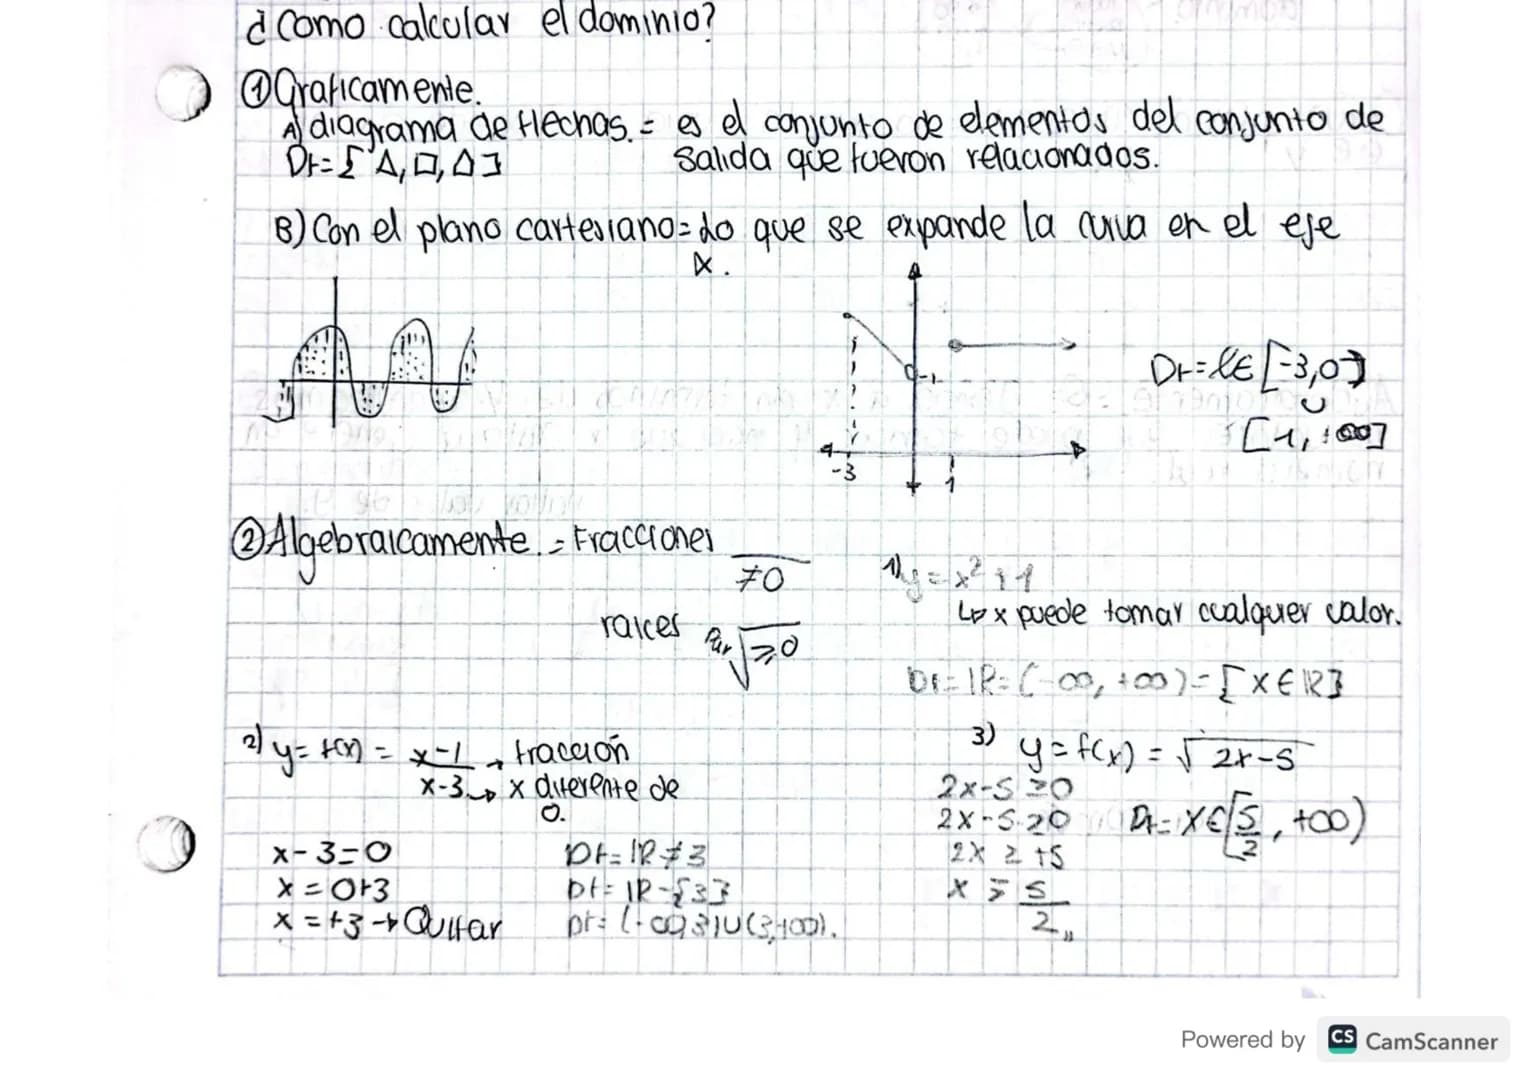 ¿Como calcular el dominio?
①Graficamente.
A) diagrama de flechas. = es el conjunto de elementos del conjunto de
Df={Δ,□,Δ} salida que fueron relacionados.
B) Con el plano cartesiano= Lo que se expande la curva en el eje
x.
-3
1
-1
[-3,0]
∪
[1, +∞]
②Algebraicamente. = Fracciones
≠0
raices Par √≥0
1) y=x²+1
↳ x puede tomar cualquier valor.
Df=IR=(-∞, +∞)={x∈IR}
2) y= f(x) = x-1 → fracción
x-3 → x diferente de
0.
x-3=0
x=0+3
x=+3→Quitar
Df=IR≠3
Df= IR-{3}
Df= (-∞,3)∪(3,+∞).
3) y=f(x)=√2x-5
2x-5≥0
2x-5≥0
2x ≥ +5
x ≥ 5
2
Df= x∈[5/2, +∞)
Powered by CS CamScanner